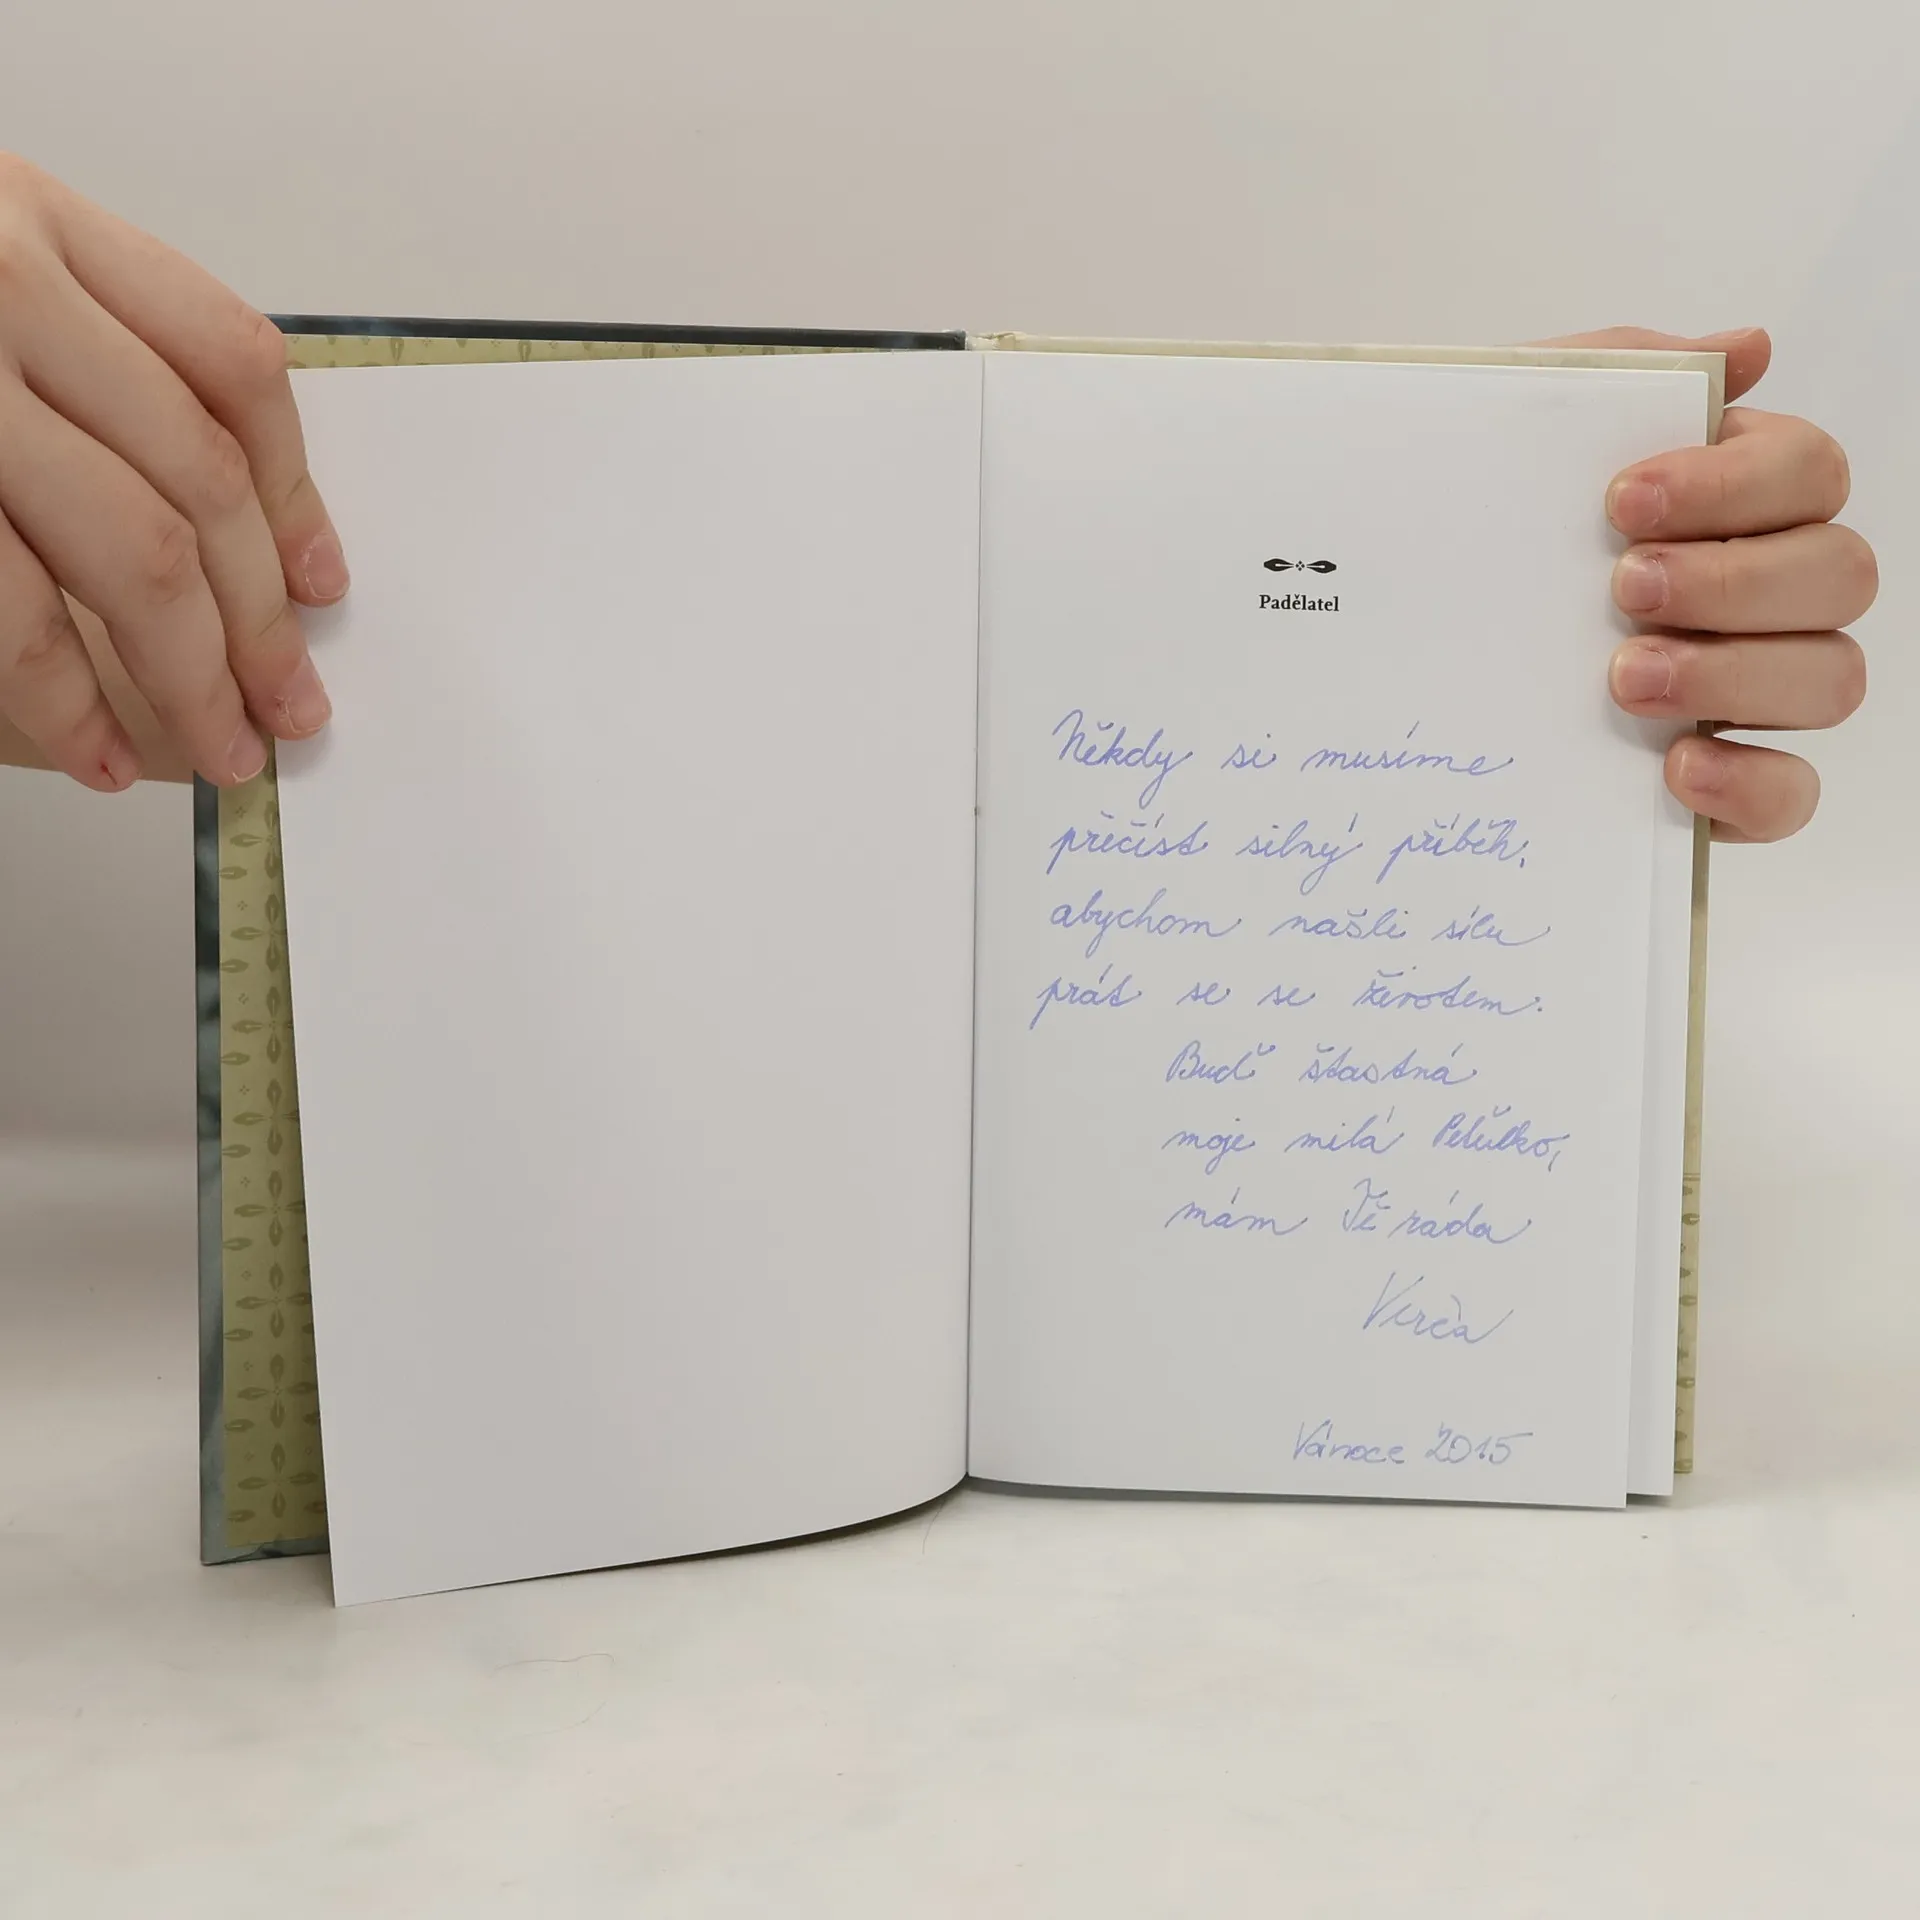 Padělatel
Někdy si musíme
přečíst silný příběh,
abychom našli sílu
prát se se životem.
Buď šťastná
moje milá Peťulko,
mám Tě ráda
Verča
Vánoce 2015